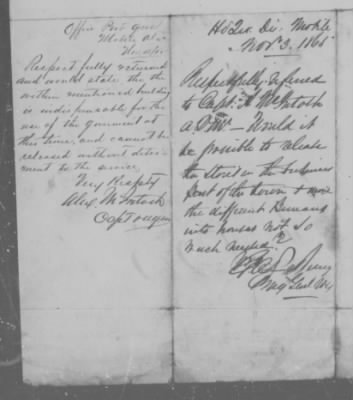 Office Post
Mobile Ala
Respectfully returned
and would state the the
within mentioned building
is indispensable for the
use of the government at
this time, and cannot be
released without detri-
ment to the service.
Very Respctfy
Alex McIntosh
Capt
Hd Qrs. Di. Mobile
Nov 3. 186
Respectfully referred
to Capt. A McIntosh
A.Q.M. — Would it
be possible to vacate
the stores in the business
part of the town &
the different
into houses not so
much needed?